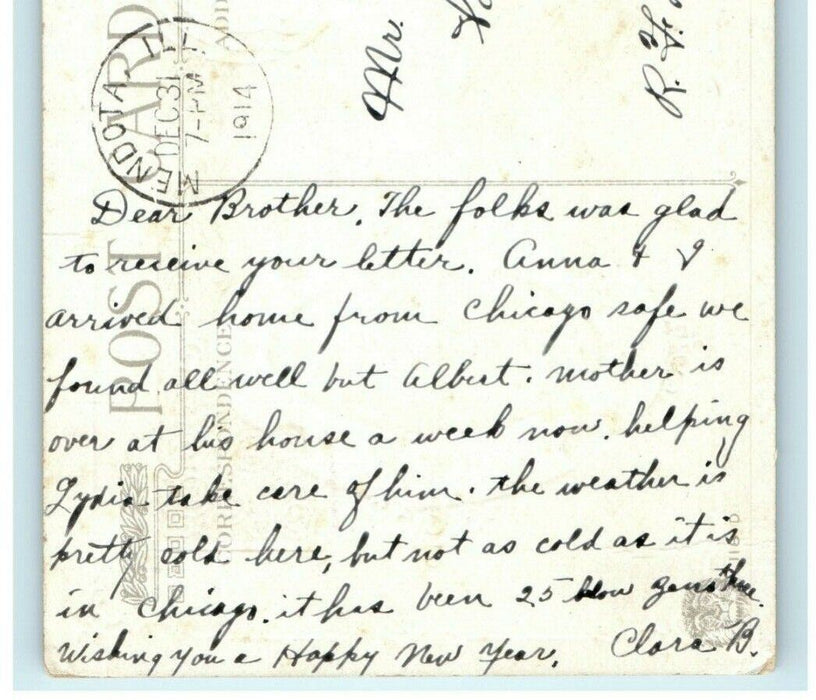 POST CARD
CORRESPONDENCE
MENDOTA, ILL
DEC 31
7-PM
1914
Mr.
R. F.
Dear Brother. The folks was glad
to receive your letter. Anna & I
arrived home from Chicago safe we
found all well but Albert. mother is
over at his house a week now. helping
Lydia take care of him. the weather is
pretty cold here, but not as cold as it is
in Chicago. it has been 25 blow zero there.
Wishing you a Happy New Year. Clara B.